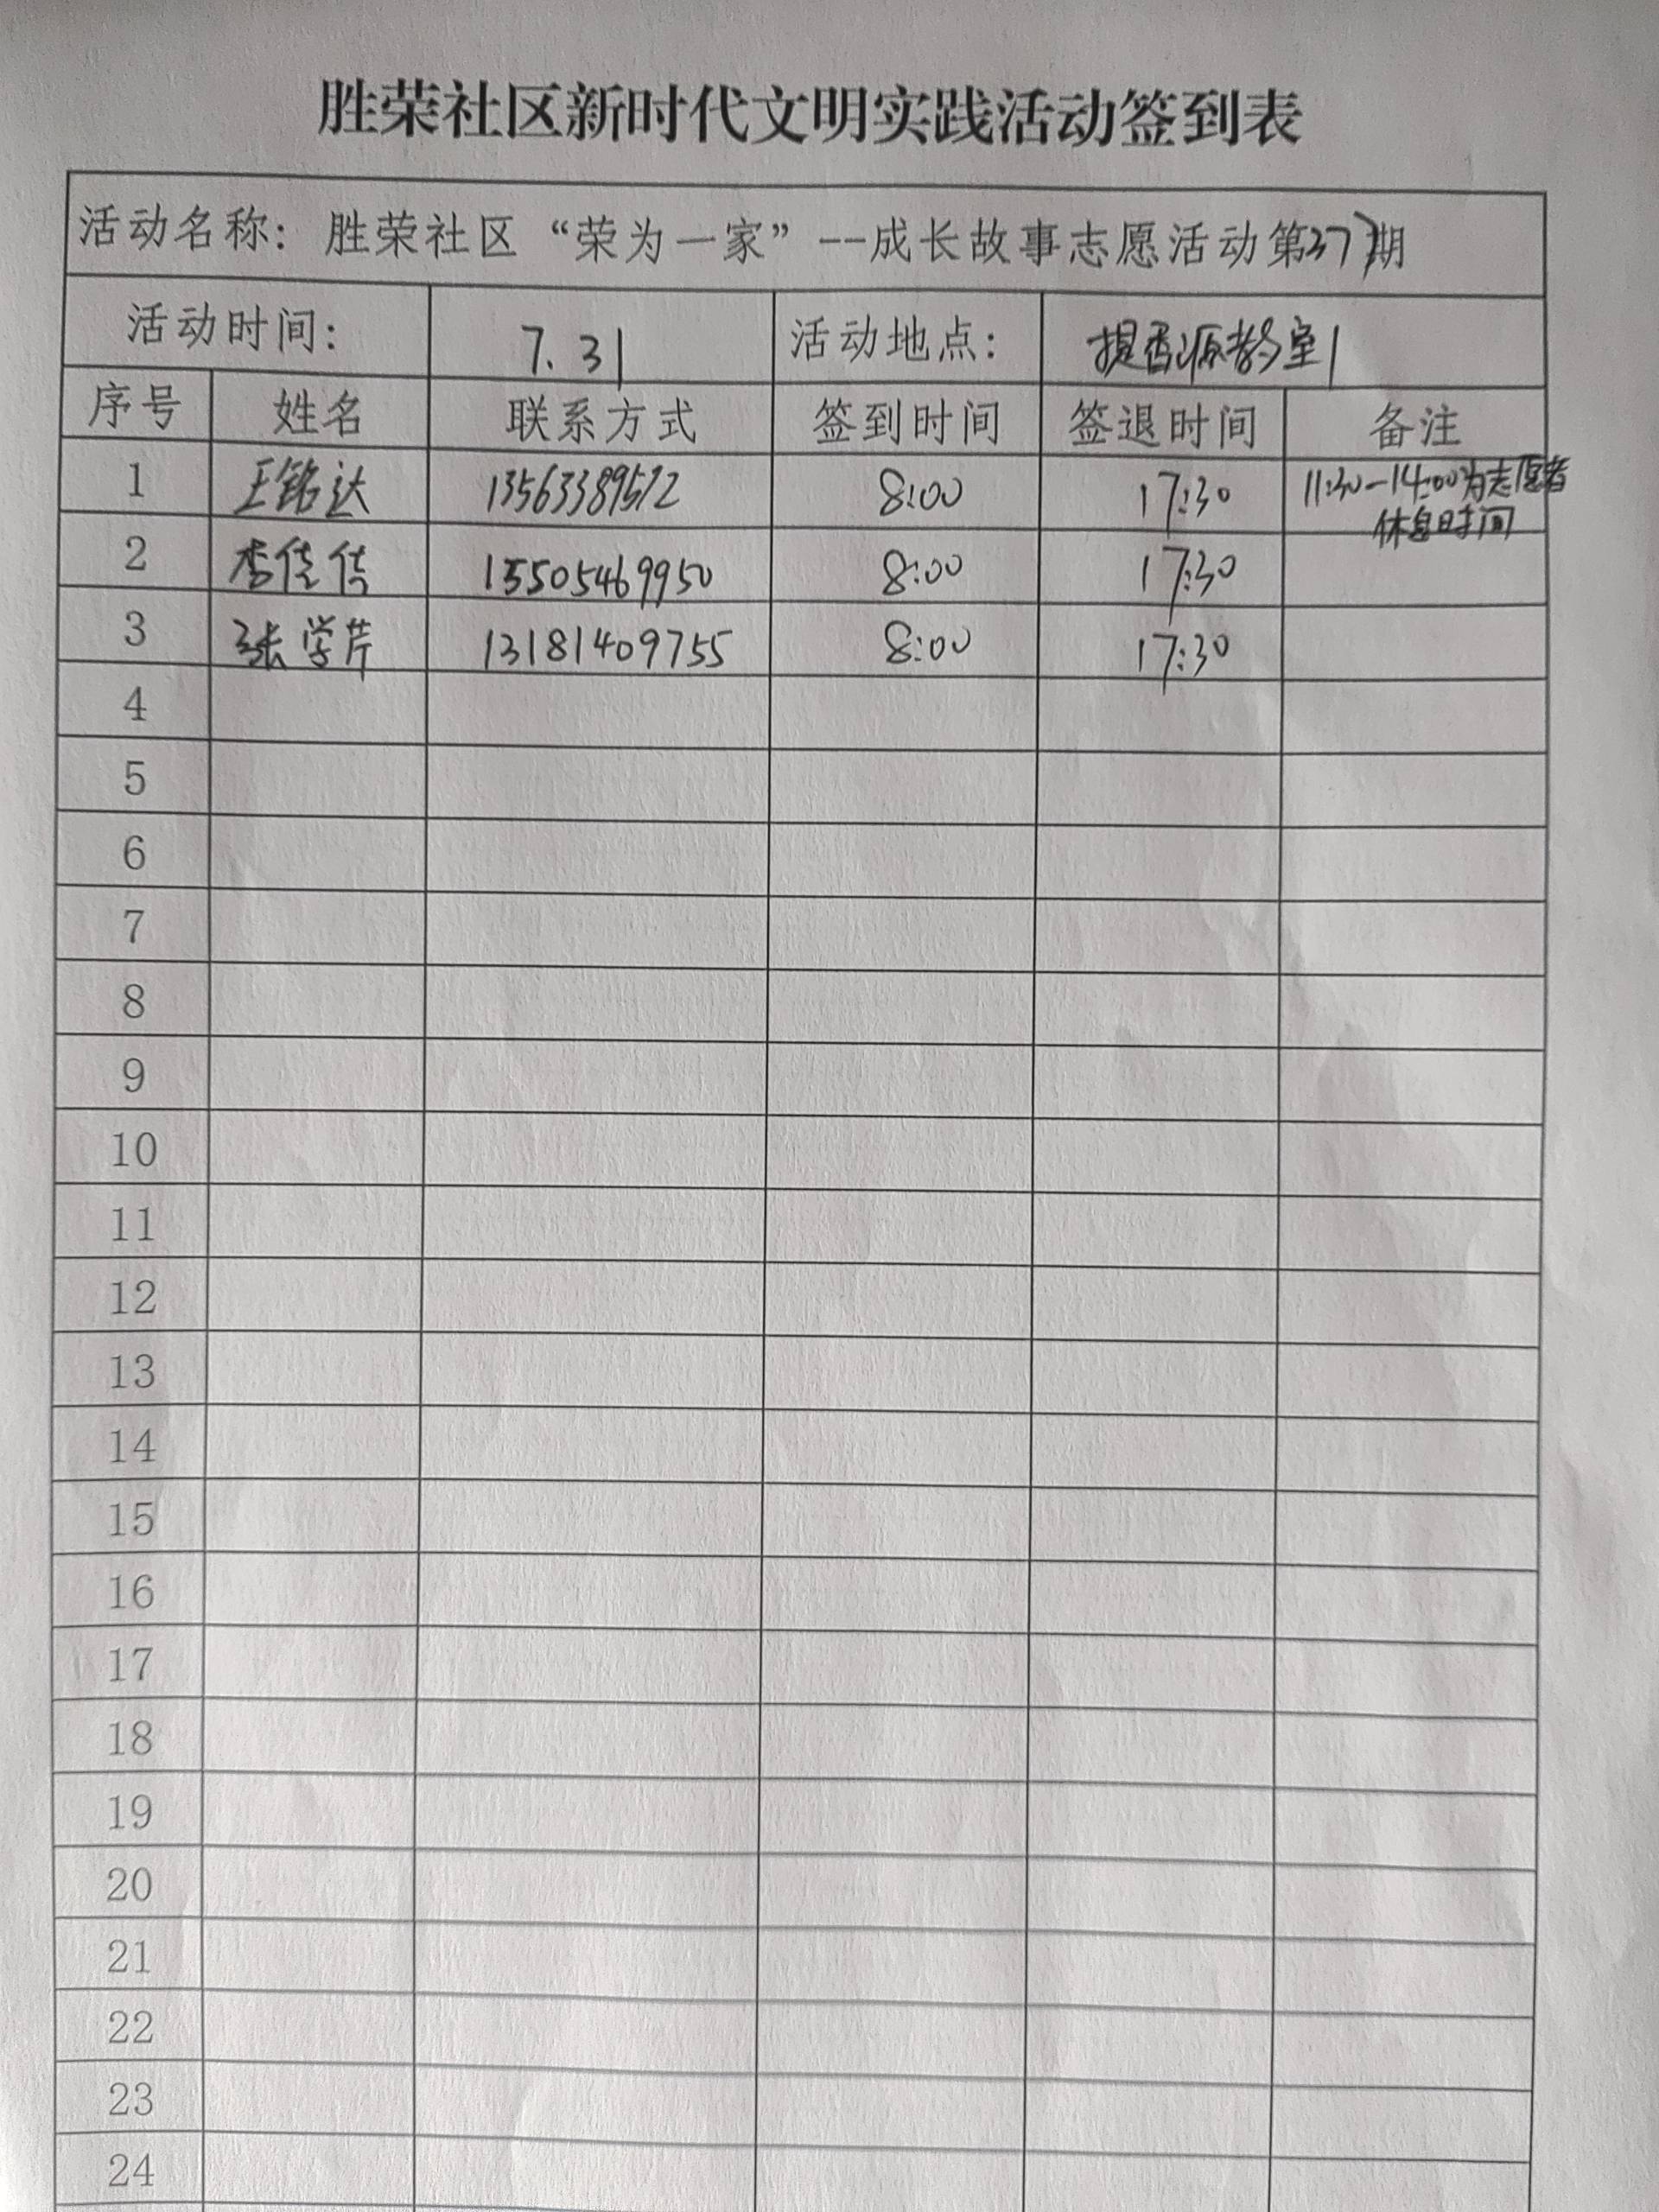 胜荣社区新时代文明实践活动签到表
活动名称：胜荣社区“荣为一家”--成长故事志愿活动第37期
活动时间： 7.31 活动地点： 提香源教室1
序号 姓名 联系方式 签到时间 签退时间 备注
1 王铭达 13563389512 8:00 17:30 11:30-14:00为志愿者
休息时间
2 李佳佳 15505469950 8:00 17:30
3 张学芹 13181409755 8:00 17:30
4
5
6
7
8
9
10
11
12
13
14
15
16
17
18
19
20
21
22
23
24